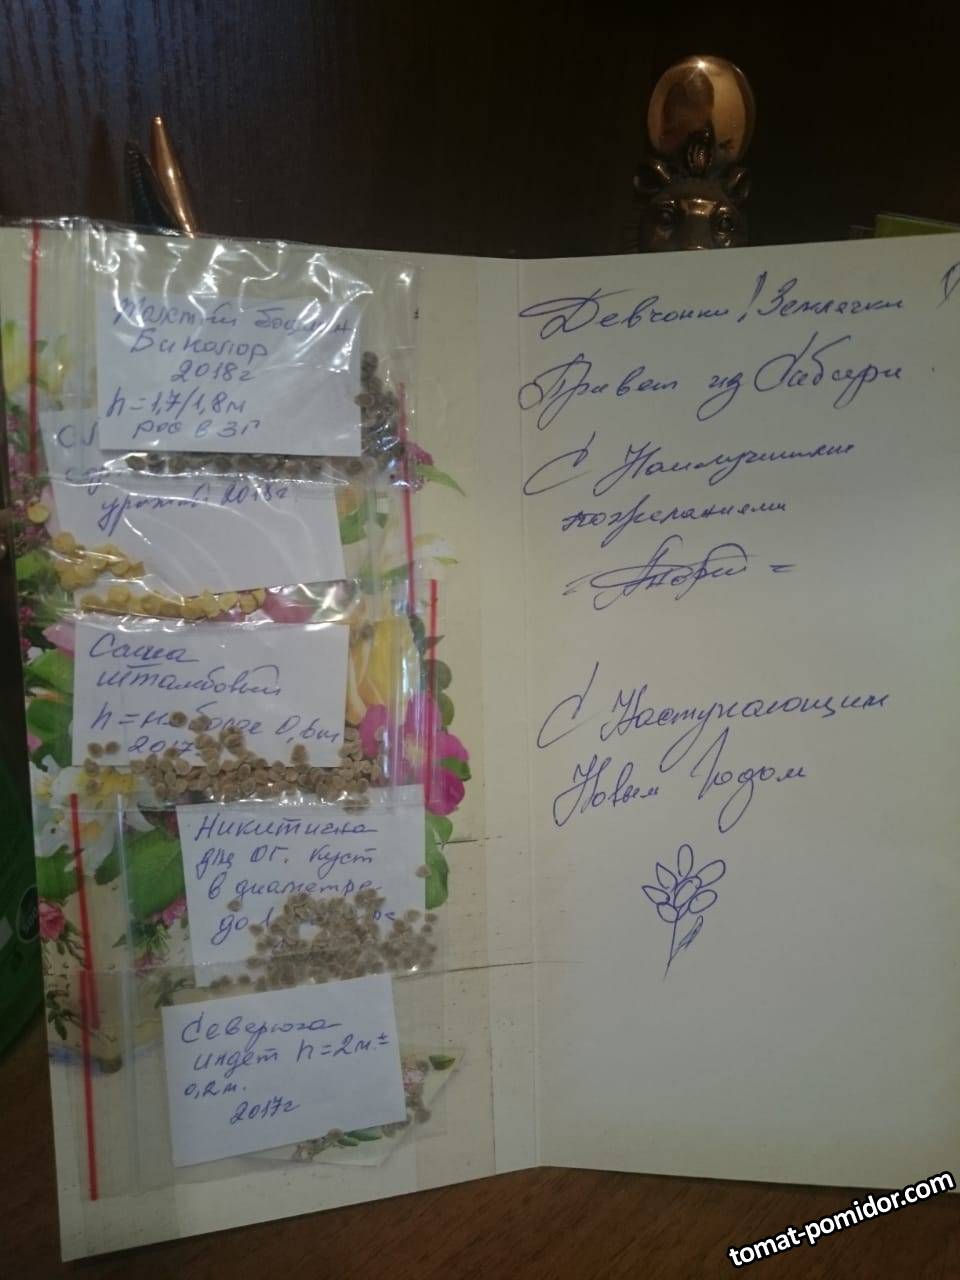 Биколор
2018г
h=1,7/1,8м
рос в ЗГ
урожай 2018г
Саша
штамбовый
h=не более 0,6м
2017г
Никитична
для ОГ. куст
в диаметре
до 1
Северюга
индет h=2м.±
0,2м.
2017г
Девчонки! Землячки
Привет из Сибири.
С Наилучшими
пожеланиями
С Наступающим
Новым Годом
tomat-pomidor.com